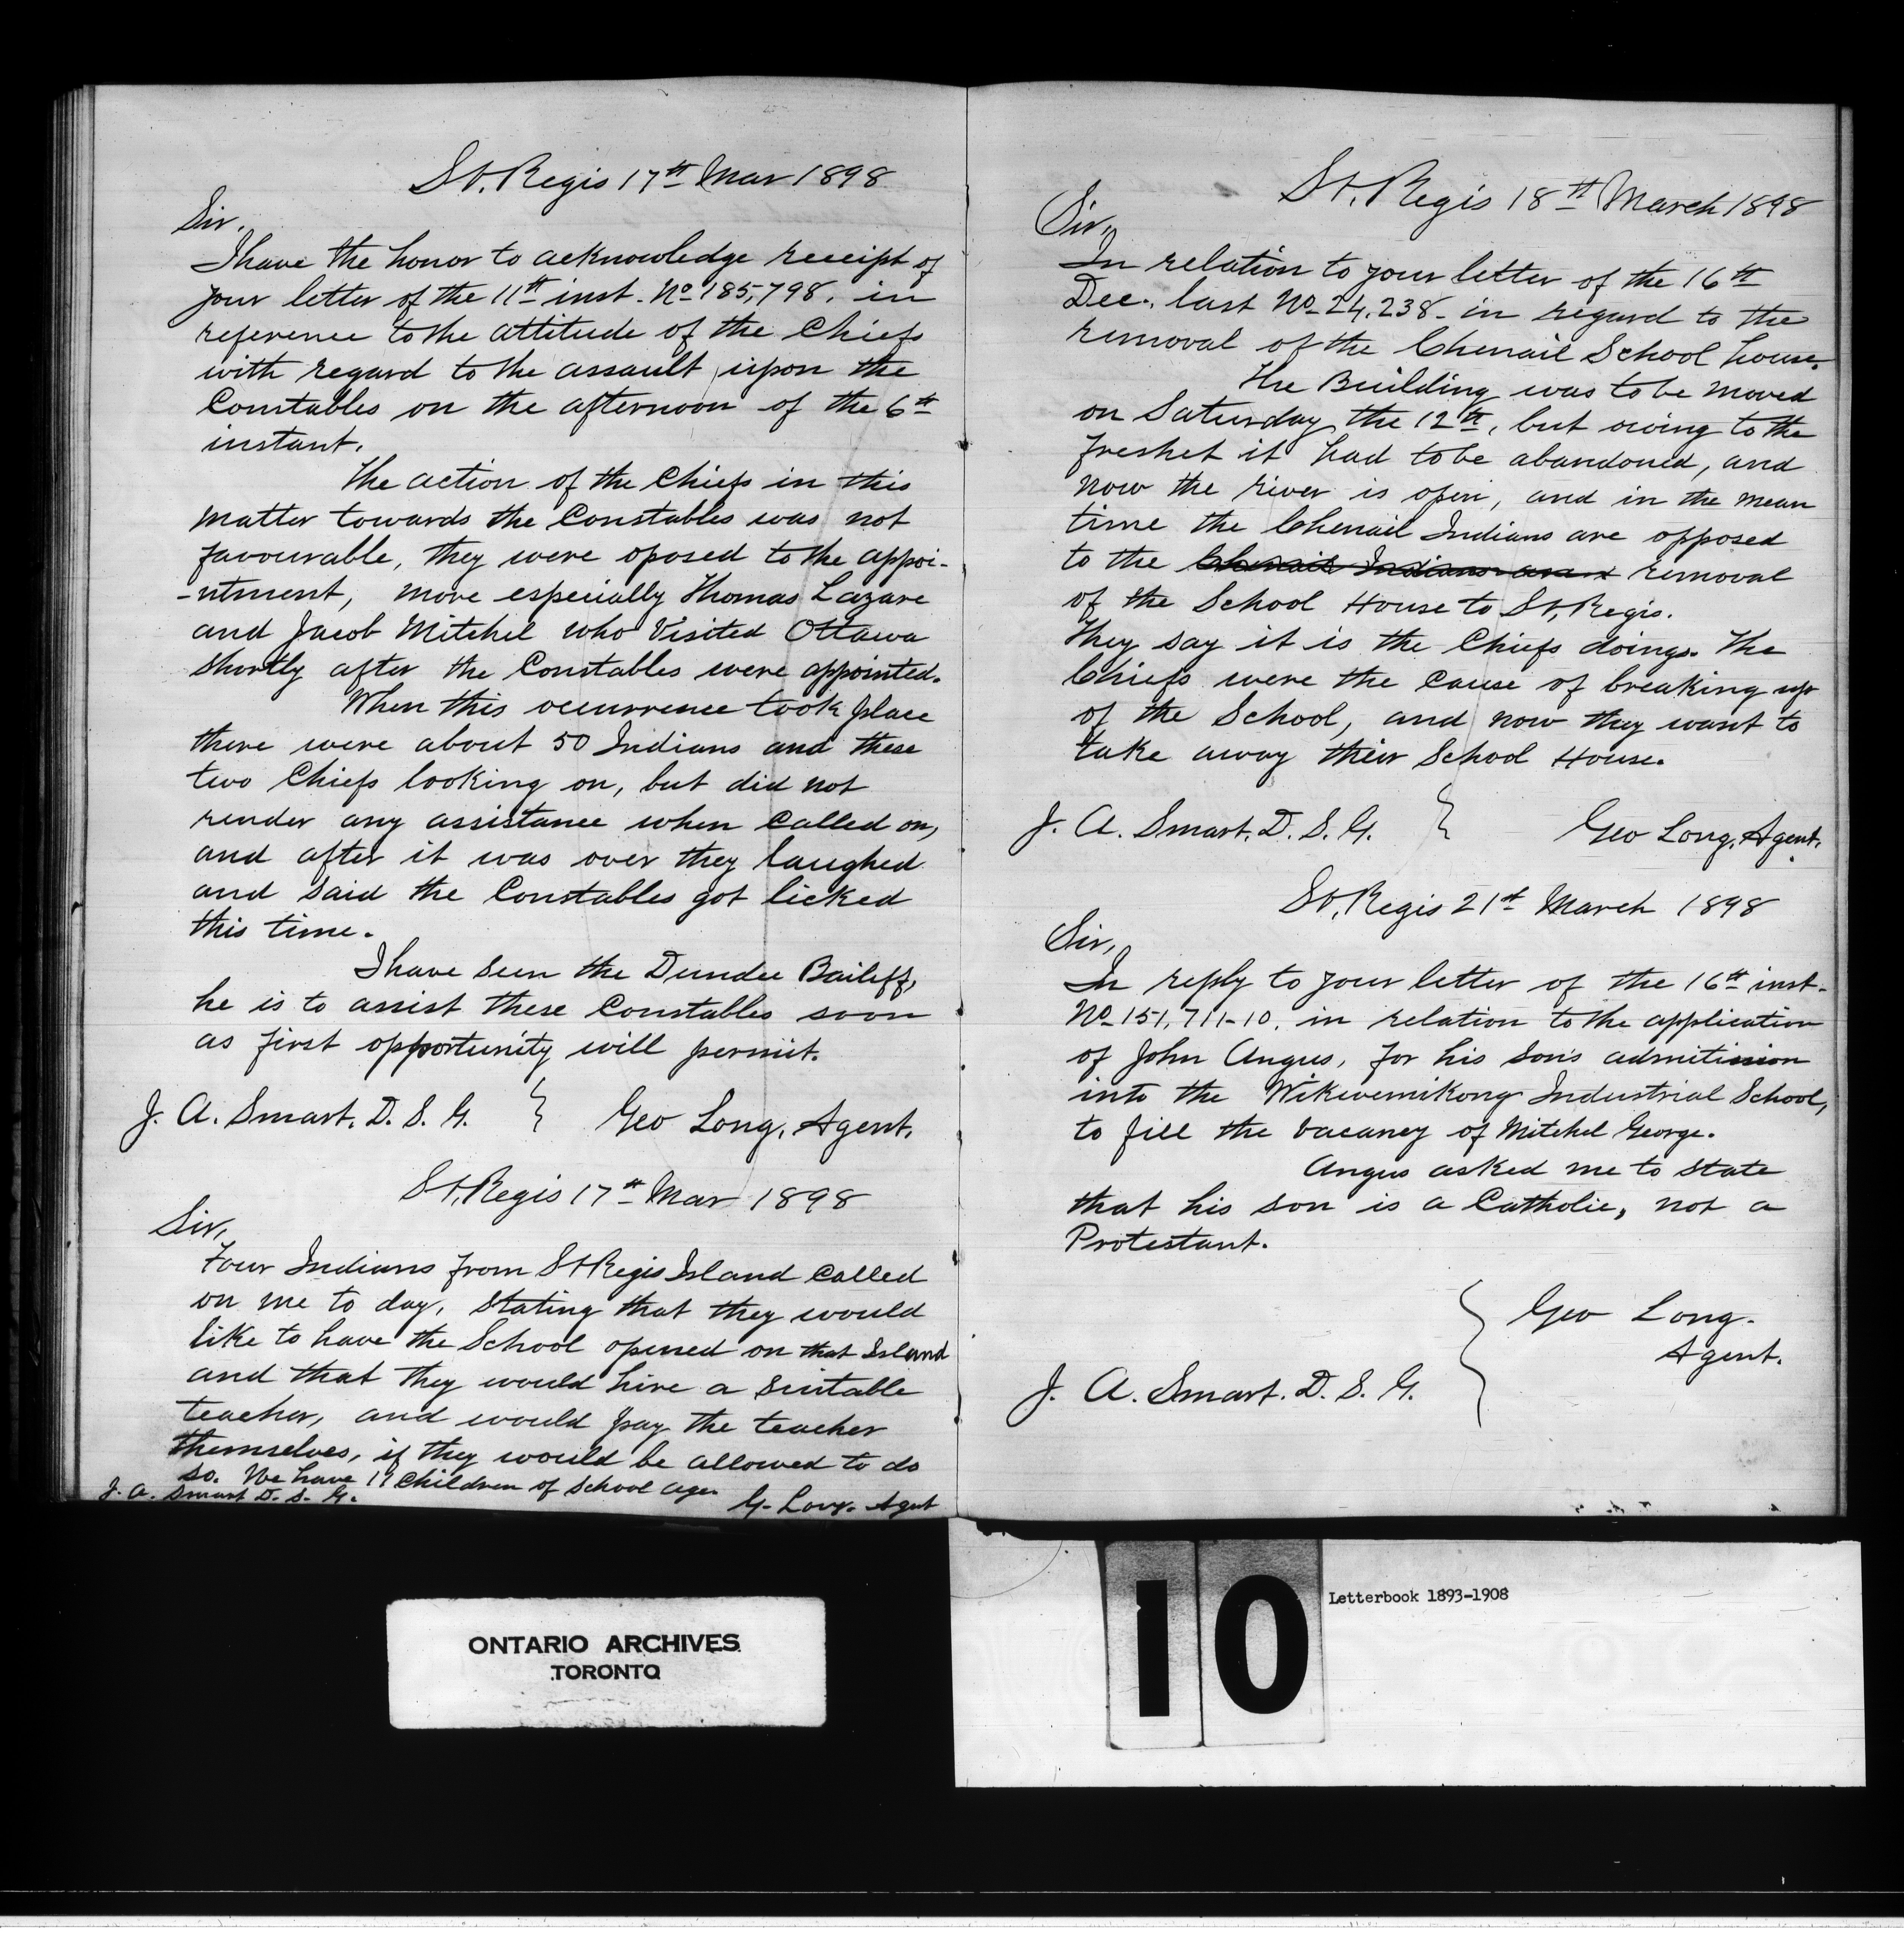 St. Regis 17th Mar 1898
Sir,
I have the honor to acknowledge receipt of
your letter of the 11th inst. No 185,798. in
reference to the attitude of the Chiefs
with regard to the assault upon the
Constables on the afternoon of the 6th
instant.
The action of the Chiefs in this
matter towards the Constables was not
favourable, they were oposed to the appoi-
-ntment, more especially Thomas Lazare
and Jacob Mitchel who Visited Ottawa
shortly after the Constables were appointed.
When this occurrence took place
there were about 50 Indians and these
two Chiefs looking on, but did not
render any assistance when called on,
and after it was over they laughed
and said the Constables got licked
this time.
I have seen the Dundee Bailiff,
he is to assist these Constables soon
as first opportunity will permit.
J. A. Smart. D. S. G. } Geo Long, Agent.
St. Regis 17th Mar 1898
Sir,
Four Indians from St Regis Island called
on me to day, stating that they would
like to have the School opened on that Island
and that they would hire a suitable
teacher, and would pay the teacher
themselves, if they would be allowed to do
so. We have Children of School age.
J. A. Smart D. S. G. G. Long. Agent
St. Regis 18th March 1898
Sir,
In relation to your letter of the 16th
Dec. last No 24.238- in regard to the
removal of the Chenail School house.
The Building was to be moved
on Saturday the 12th, but owing to the
freshet it had to be abandoned, and
now the river is open, and in the mean
time the Chenail Indians are opposed
to the Chenail Indians are removal
of the School House to St, Regis.
They say it is the Chiefs doings. The
Chiefs were the cause of breaking up
of the School, and now they want to
take away their School House.
J. A. Smart. D. S. G. } Geo Long, Agent.
St, Regis 21st March 1898
Sir,
In reply to your letter of the 16th inst-
No 151,711-10. in relation to the application
of John Angus, for his son's admitission
into the Wikwemikong Industrial School,
to fill the vacancy of Mitchel George.
Angus asked me to state
that his son is a Catholic, not a
Protestant.
Geo Long.
Agent.
J. A. Smart. D. S. G.
10
Letterbook 1893-1908
ONTARIO ARCHIVES
TORONTO